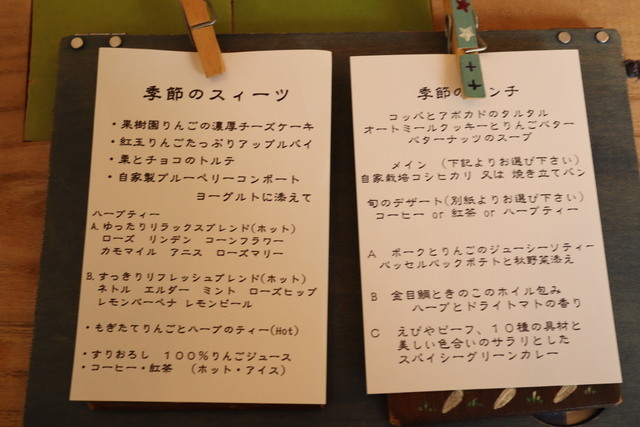 季節のスィーツ
・果樹園りんごの濃厚チーズケーキ
・紅玉りんごたっぷりアップルパイ
・栗とチョコのトルテ
・自家製ブルーベリーコンポート
ヨーグルトに添えて
ハーブティー
A.ゆったりリラックスブレンド(ホット)
ローズ リンデン コーンフラワー
カモマイル アニス ローズマリー
B.すっきりリフレッシュブレンド(ホット)
ネトル エルダー ミント ローズヒップ
レモンバーベナ レモンピール
・もぎたてりんごとハーブのティー(Hot)
・すりおろし 100%りんごジュース
・コーヒー・紅茶 (ホット・アイス)
季節の ンチ
コッパとアボカドのタルタル
オートミールクッキーとりんごバター
バターナッツのスープ
メイン (下記よりお選び下さい)
自家栽培コシヒカリ 又は 焼き立てパン
旬のデザート(別紙よりお選び下さい)
コーヒー or 紅茶 or ハーブティー
A ポークとりんごのジューシーソティー
バッセルバックポテトと秋野菜添え
B 金目鯛ときのこのホイル包み
ハーブとドライトマトの香り
C えびやビーフ、10種の具材と
美しい色合いのサラリとした
スパイシーグリーンカレー